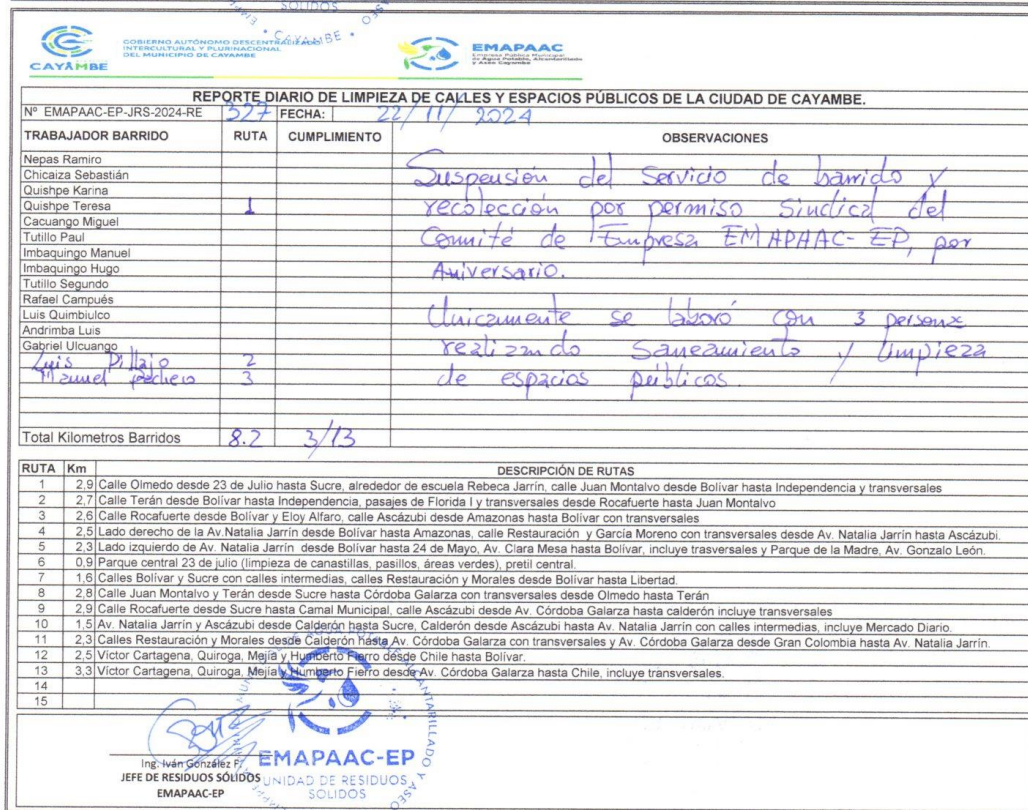 SOLIDOS
CAYAMBE
ASEO
CAYAMBE
GOBIERNO AUTÓNOMO DESCENTRALIZADO
INTERCULTURAL Y PLURINACIONAL
DEL MUNICIPIO DE CAYAMBE
EMAPAAC
Empresa Pública Municipal
de Agua Potable, Alcantarillado
y Aseo Cayambe
REPORTE DIARIO DE LIMPIEZA DE CALLES Y ESPACIOS PÚBLICOS DE LA CIUDAD DE CAYAMBE.
Nº EMAPAAC-EP-JRS-2024-RE 327 FECHA: 22/11/2024
TRABAJADOR BARRIDO RUTA CUMPLIMIENTO OBSERVACIONES
Nepas Ramiro
Chicaiza Sebastián Suspensión del Servicio de barrido y
Quishpe Karina
Quishpe Teresa 1 recolección por permiso Sindical del
Cacuango Miguel
Tutillo Paul Comité de Empresa EMAPAAC-EP, por
Imbaquingo Manuel
Imbaquingo Hugo Aniversario.
Tutillo Segundo
Rafael Campués
Luis Quimbiulco Unicamente se laboró con 3 personas
Andrimba Luis
Gabriel Ulcuango realizando Saneamiento y limpieza
Luis Pillajo 2
Manuel pacheco 3 de espacios públicos.
Total Kilometros Barridos 8.2 3/13
RUTA Km DESCRIPCIÓN DE RUTAS
1 2,9 Calle Olmedo desde 23 de Julio hasta Sucre, alrededor de escuela Rebeca Jarrín, calle Juan Montalvo desde Bolívar hasta Independencia y transversales
2 2,7 Calle Terán desde Bolívar hasta Independencia, pasajes de Florida I y transversales desde Rocafuerte hasta Juan Montalvo
3 2,6 Calle Rocafuerte desde Bolívar y Eloy Alfaro, calle Ascázubi desde Amazonas hasta Bolívar con transversales
4 2,5 Lado derecho de la Av.Natalia Jarrín desde Bolívar hasta Amazonas, calle Restauración y García Moreno con transversales desde Av. Natalia Jarrín hasta Ascázubi.
5 2,3 Lado izquierdo de Av. Natalia Jarrín desde Bolívar hasta 24 de Mayo, Av. Clara Mesa hasta Bolívar, incluye trasversales y Parque de la Madre, Av. Gonzalo León.
6 0,9 Parque central 23 de julio (limpieza de canastillas, pasillos, áreas verdes), pretil central.
7 1,6 Calles Bolívar y Sucre con calles intermedias, calles Restauración y Morales desde Bolívar hasta Libertad.
8 2,8 Calle Juan Montalvo y Terán desde Sucre hasta Córdoba Galarza con transversales desde Olmedo hasta Terán
9 2,9 Calle Rocafuerte desde Sucre hasta Camal Municipal, calle Ascázubi desde Av. Córdoba Galarza hasta calderón incluye transversales
10 1,5 Av. Natalia Jarrín y Ascázubi desde Calderón hasta Sucre, Calderón desde Ascázubi hasta Av. Natalia Jarrín con calles intermedias, incluye Mercado Diario.
11 2,3 Calles Restauración y Morales desde Calderón hasta Av. Córdoba Galarza con transversales y Av. Córdoba Galarza desde Gran Colombia hasta Av. Natalia Jarrín.
12 2,5 Víctor Cartagena, Quiroga, Mejía y Humberto Fierro desde Chile hasta Bolívar.
13 3,3 Víctor Cartagena, Quiroga, Mejía y Humberto Fierro desde Av. Córdoba Galarza hasta Chile, incluye transversales.
14
15
Ing. Iván González F.
JEFE DE RESIDUOS SÓLIDOS
EMAPAAC-EP
EMAPAAC-EP
UNIDAD DE RESIDUOS
SOLIDOS